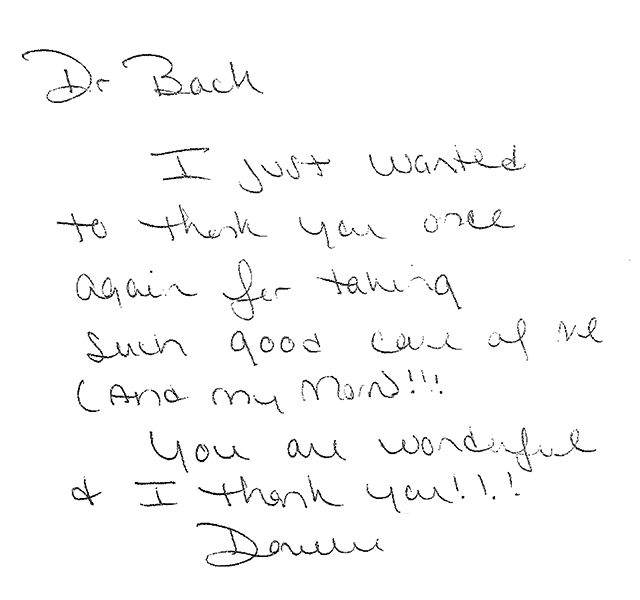 Dr Back
I just wanted
to thank you once
again for taking
such good care of me
(And my Mom)!!!
You are wonderful
& I thank you!!!